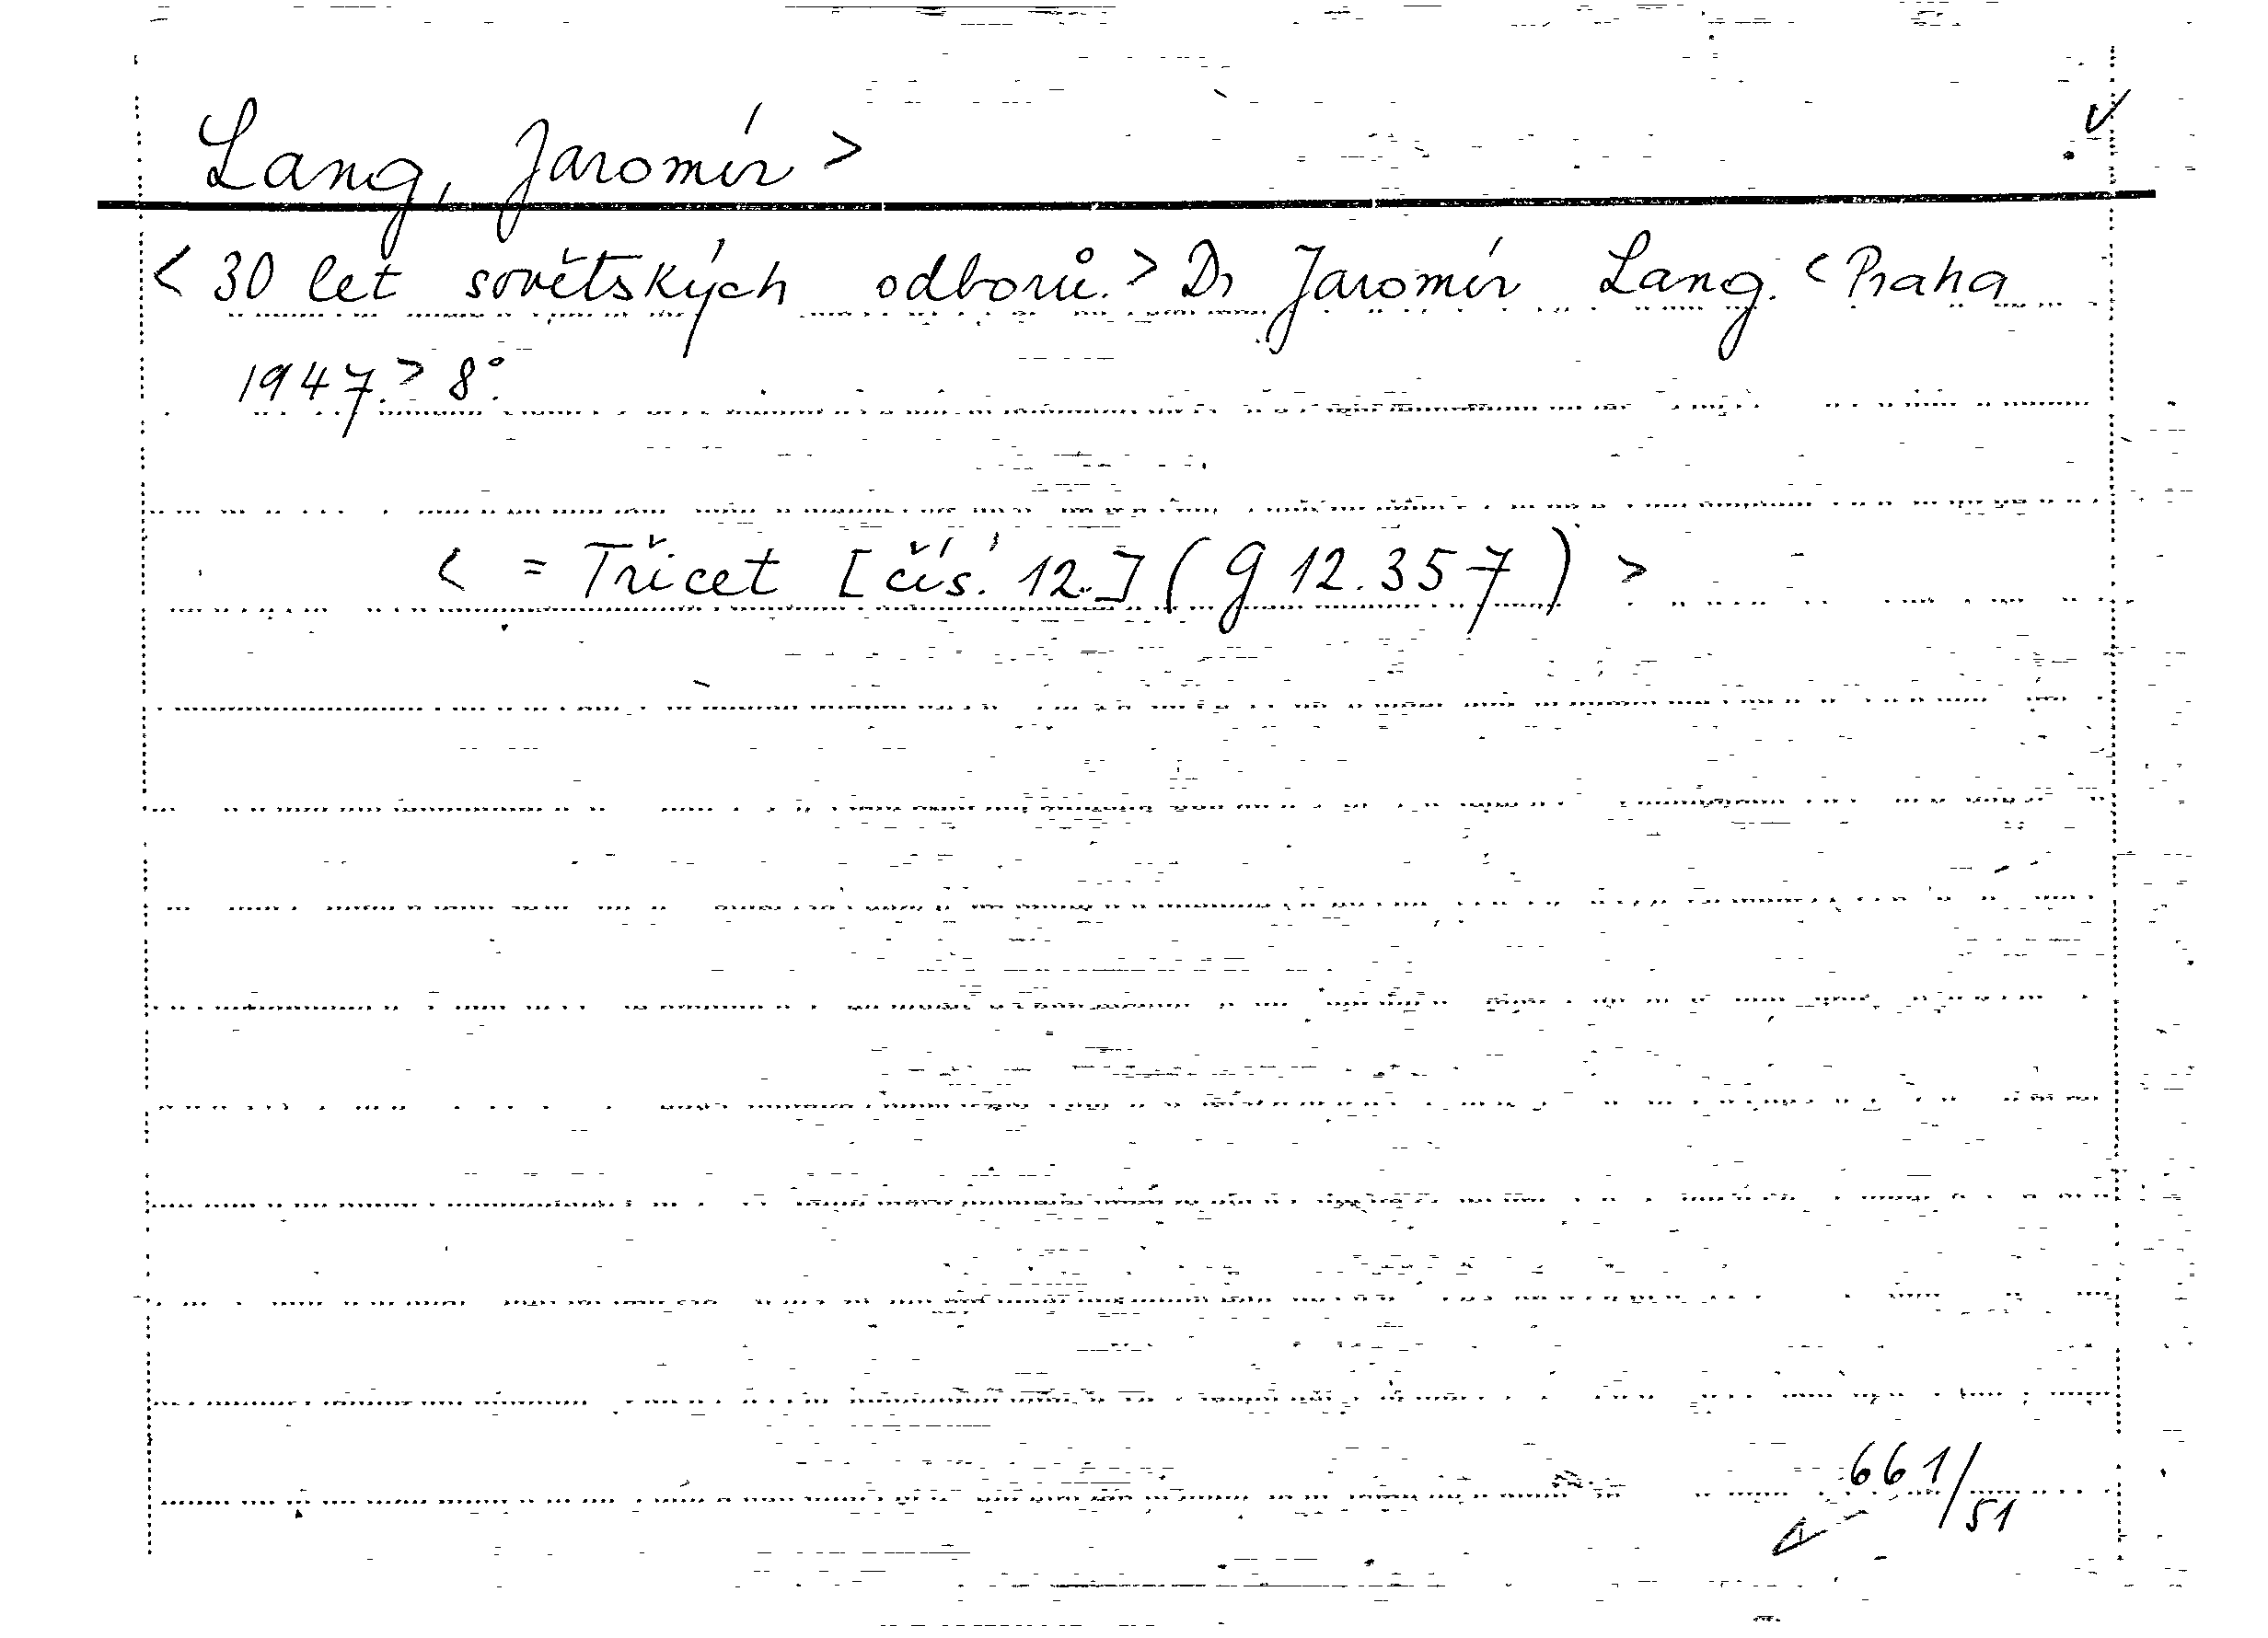 Lang, Jaromír >
< 30 let sovětských odborů. > Dr Jaromír Lang. < Praha
1947. > 8°.
< = Třicet [čís. 12.] (g 12.357) >
661/51